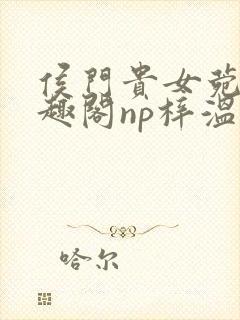 侯門貴女菀
趣閣np梓溫
哈尔